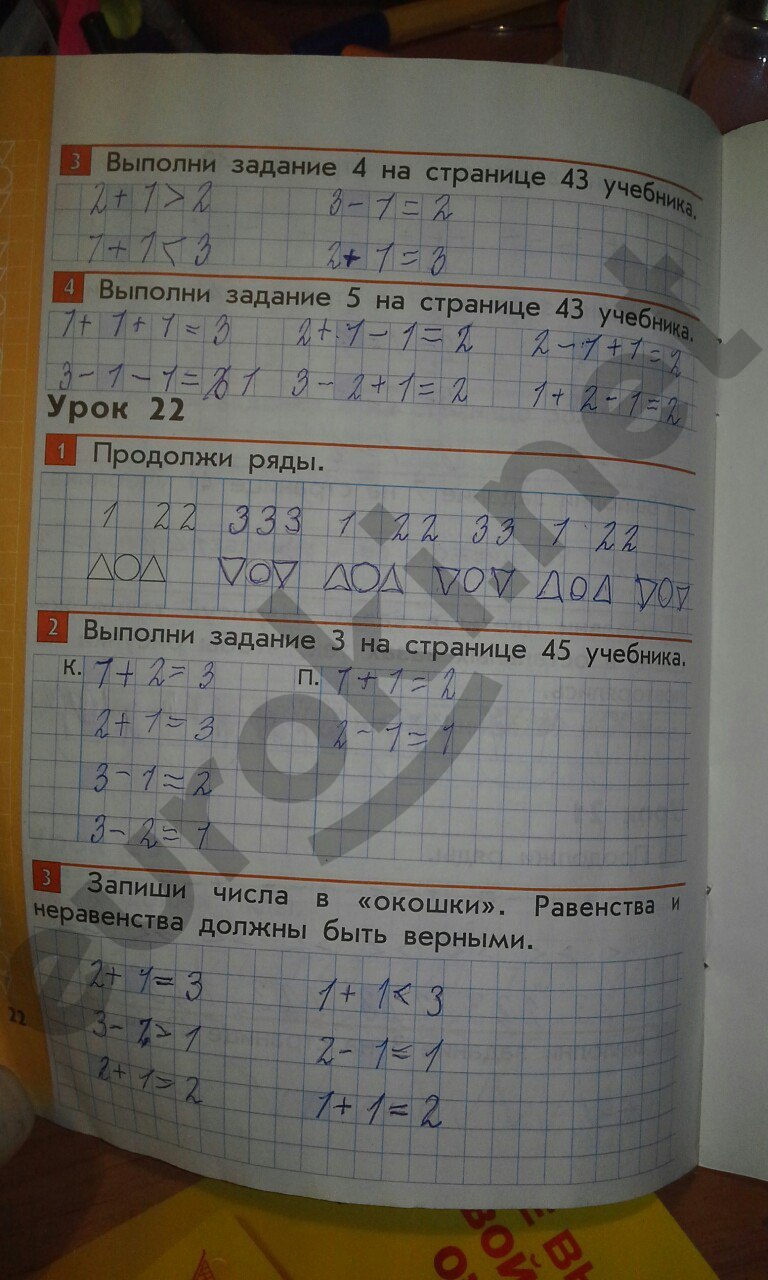 3 Выполни задание 4 на странице 43 учебника.
2+1>2 3-1=2
1+1<3 2+1=3
4 Выполни задание 5 на странице 43 учебника.
1+1+1=3 2+1-1=2 2-1+1=2
3-1-1= 1 3-2+1=2 1+2-1=2
Урок 22
1 Продолжи ряды.
1 22 333 1 22 33 1 22
△○△ ▽○▽ △○△ ▽○▽ △○△ ▽○▽
2 Выполни задание 3 на странице 45 учебника.
К. 1+2=3 П. 1+1=2
2+1=3 2-1=1
3-1=2
3-2=1
3 Запиши числа в «окошки». Равенства и
неравенства должны быть верными.
2+1=3 1+1<3
3- >1 2-1=1
2+1>2 1+1=2
22
euroki.net
ВОЙ